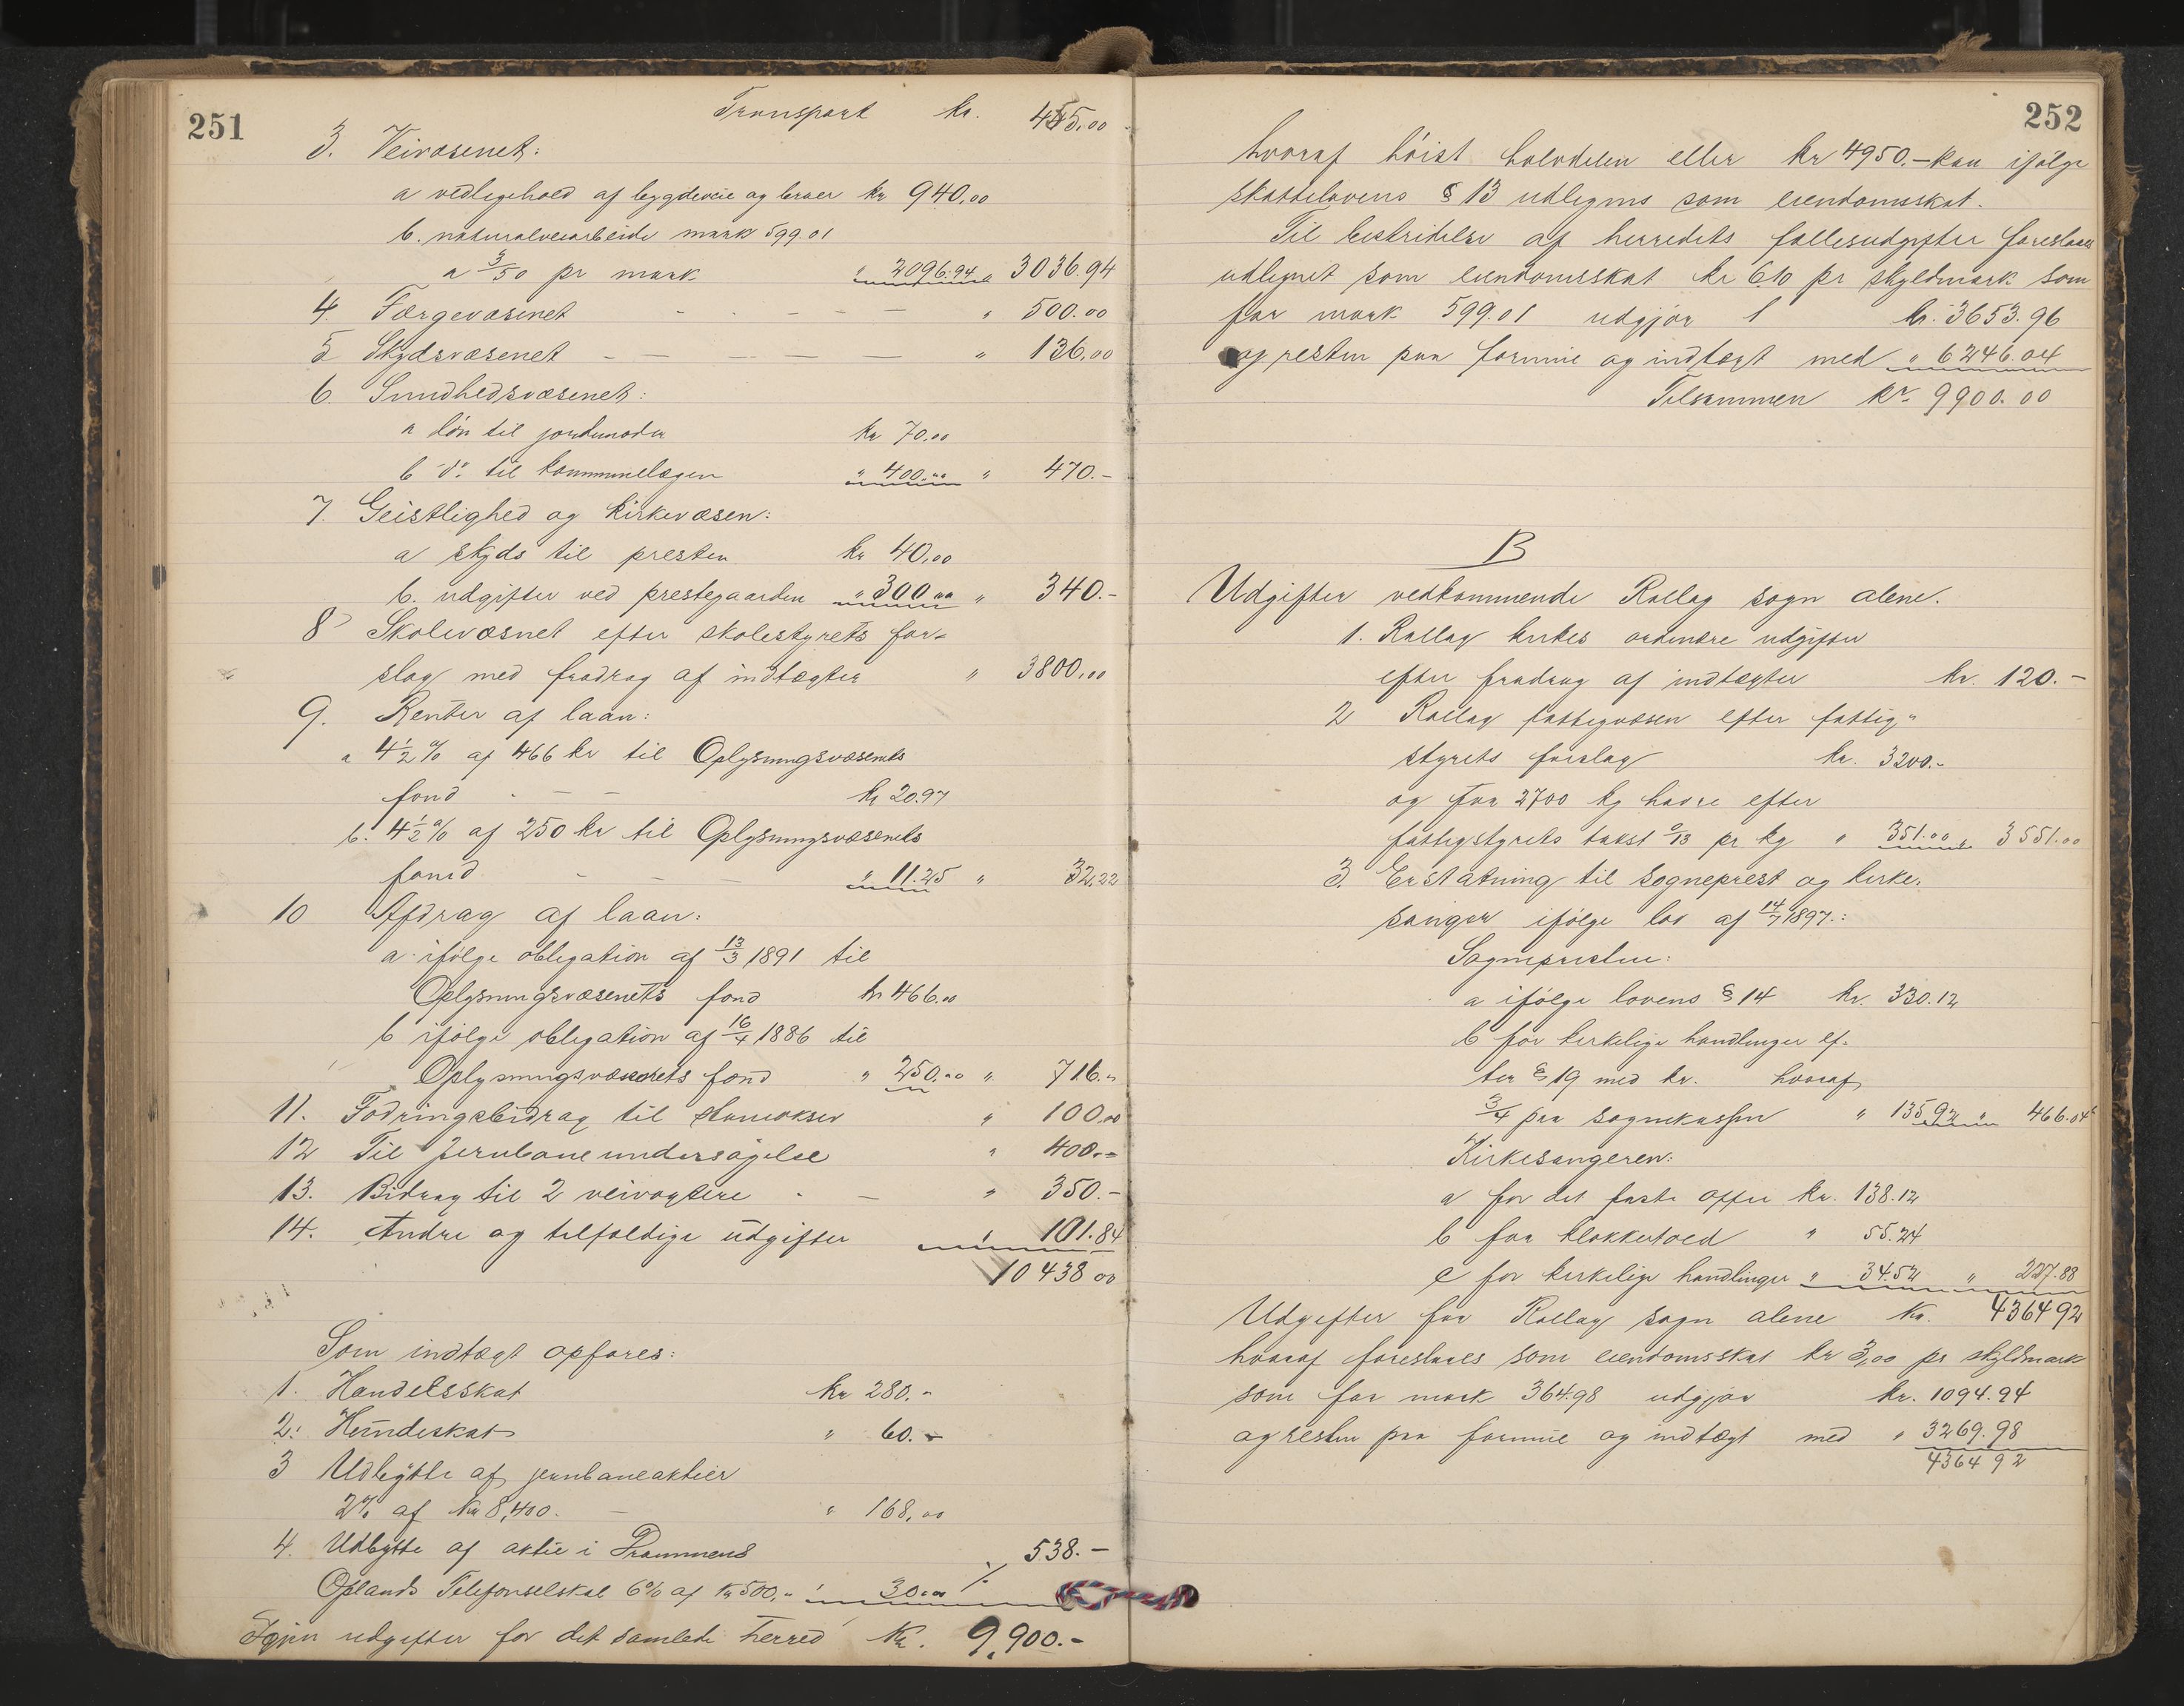 251
Transport kr. 455,00
3. Veivæsenet:
a vedligehold af bygdeveie og broer kr 940,00
b. naturalveiarbeide mark 599.01
a 3/50 pr mark " 2096.94 " 3036.94
4 Færgevæsenet - - - - - " 500.00
5 Skydsvæsenet - - - - - " 136,00
6. Sundhedsvæsenet:
a løn til jordmoder kr 70,00
b do. til kommunelægen " 400,00 " 470.-
7. Geistlighed og kirkevæsen:
a skyds til presten kr 40,00
b. udgifter ved prestegaarden " 300,00 " 340.-
8 Skolevæsnet efter skolestyrets for-
slag med fradrag af indtægter " 3800,00
9. Renter af laan:
a 4½% af 466 kr til Oplysningsvæsenets
fond - - - kr 20.97
b. 4½% af 250 kr til Oplysningsvæsenets
fond - - - " 11.25 " 32,22
10 Afdrag af laan:
a ifølge obligation af 13/3 1891 til
Oplysningsvæsenets fond kr 466,00
b ifølge obligation af 16/4 1886 til
Oplysningsvæsenets fond " 250,00 " 716.-
11. Fodringsbidrag til " 100,00
12 Til Jernbaneundersøgelse " 400.-
13. Bidrag til 2 veivogtere - - " 350.-
14. Andre og tilfældige udgifter " 101.84
10438 00
Som indtægt opføres:
1. Handelsskat kr 280.-
2. Hundeskat " 60.-
3 Udbytte af jernbaneaktier
2% af kr 8,400. - " 168,00
4. Udbytte af aktie i Drammens 538.-
Oplands Telefonselskab 6% af kr 500,- " 30,00 ÷
Igjen udgifter for det samlede herred Kr. 9,900.-
252
hvoraf høist halvdelen eller kr 4950.- kan ifølge
skattelovens § 13 udlignes som eiendomsskat.
Til bestridelse af herredets fællesudgifter foreslaaes
udlignet som eiendomsskat kr 6.10 pr skyldmark som
for mark 599.01 udgjør kr. 3653.96
og resten paa formue og indtægt med " 6246.04
Tilsammen kr. 9900.00
B
Udgifter vedkommende Rollag sogn alene.
1. Rollag kirkes ordinære udgifter
efter fradrag af indtægter kr. 120.-
2 Rollag fattigvæsen efter fattig-
styrets forslag kr. 3200.-
og for 2700 kg havre efter
fattigstyrets takst 0/13 pr kg " 351.00 " 3551.00
3. Erstatning til sogneprest og kirke-
sanger ifølge lov af 14/7 1897.:
Sognepresten:
a ifølge lovens § 14 kr. 330.12
b for kirkelige handlinger ef-
ter § 19 med kr. hvoraf
3/4 paa sognekassen " 135.92 " 466.04
Kirkesangeren:
a for det faste offer kr. 138.12
b for klokkertold " 55.24
c for kirkelige handlinger " 34.52 " 227.88
Udgifter for Rollag sogn alene Kr. 4364 92
hvoraf foreslaaes som eiendomsskat kr 3,00 pr skyldmark
som for mark 364.98 udgjør kr. 1094.94
og resten paa formue og indtægt med " 3269.98
4364 92